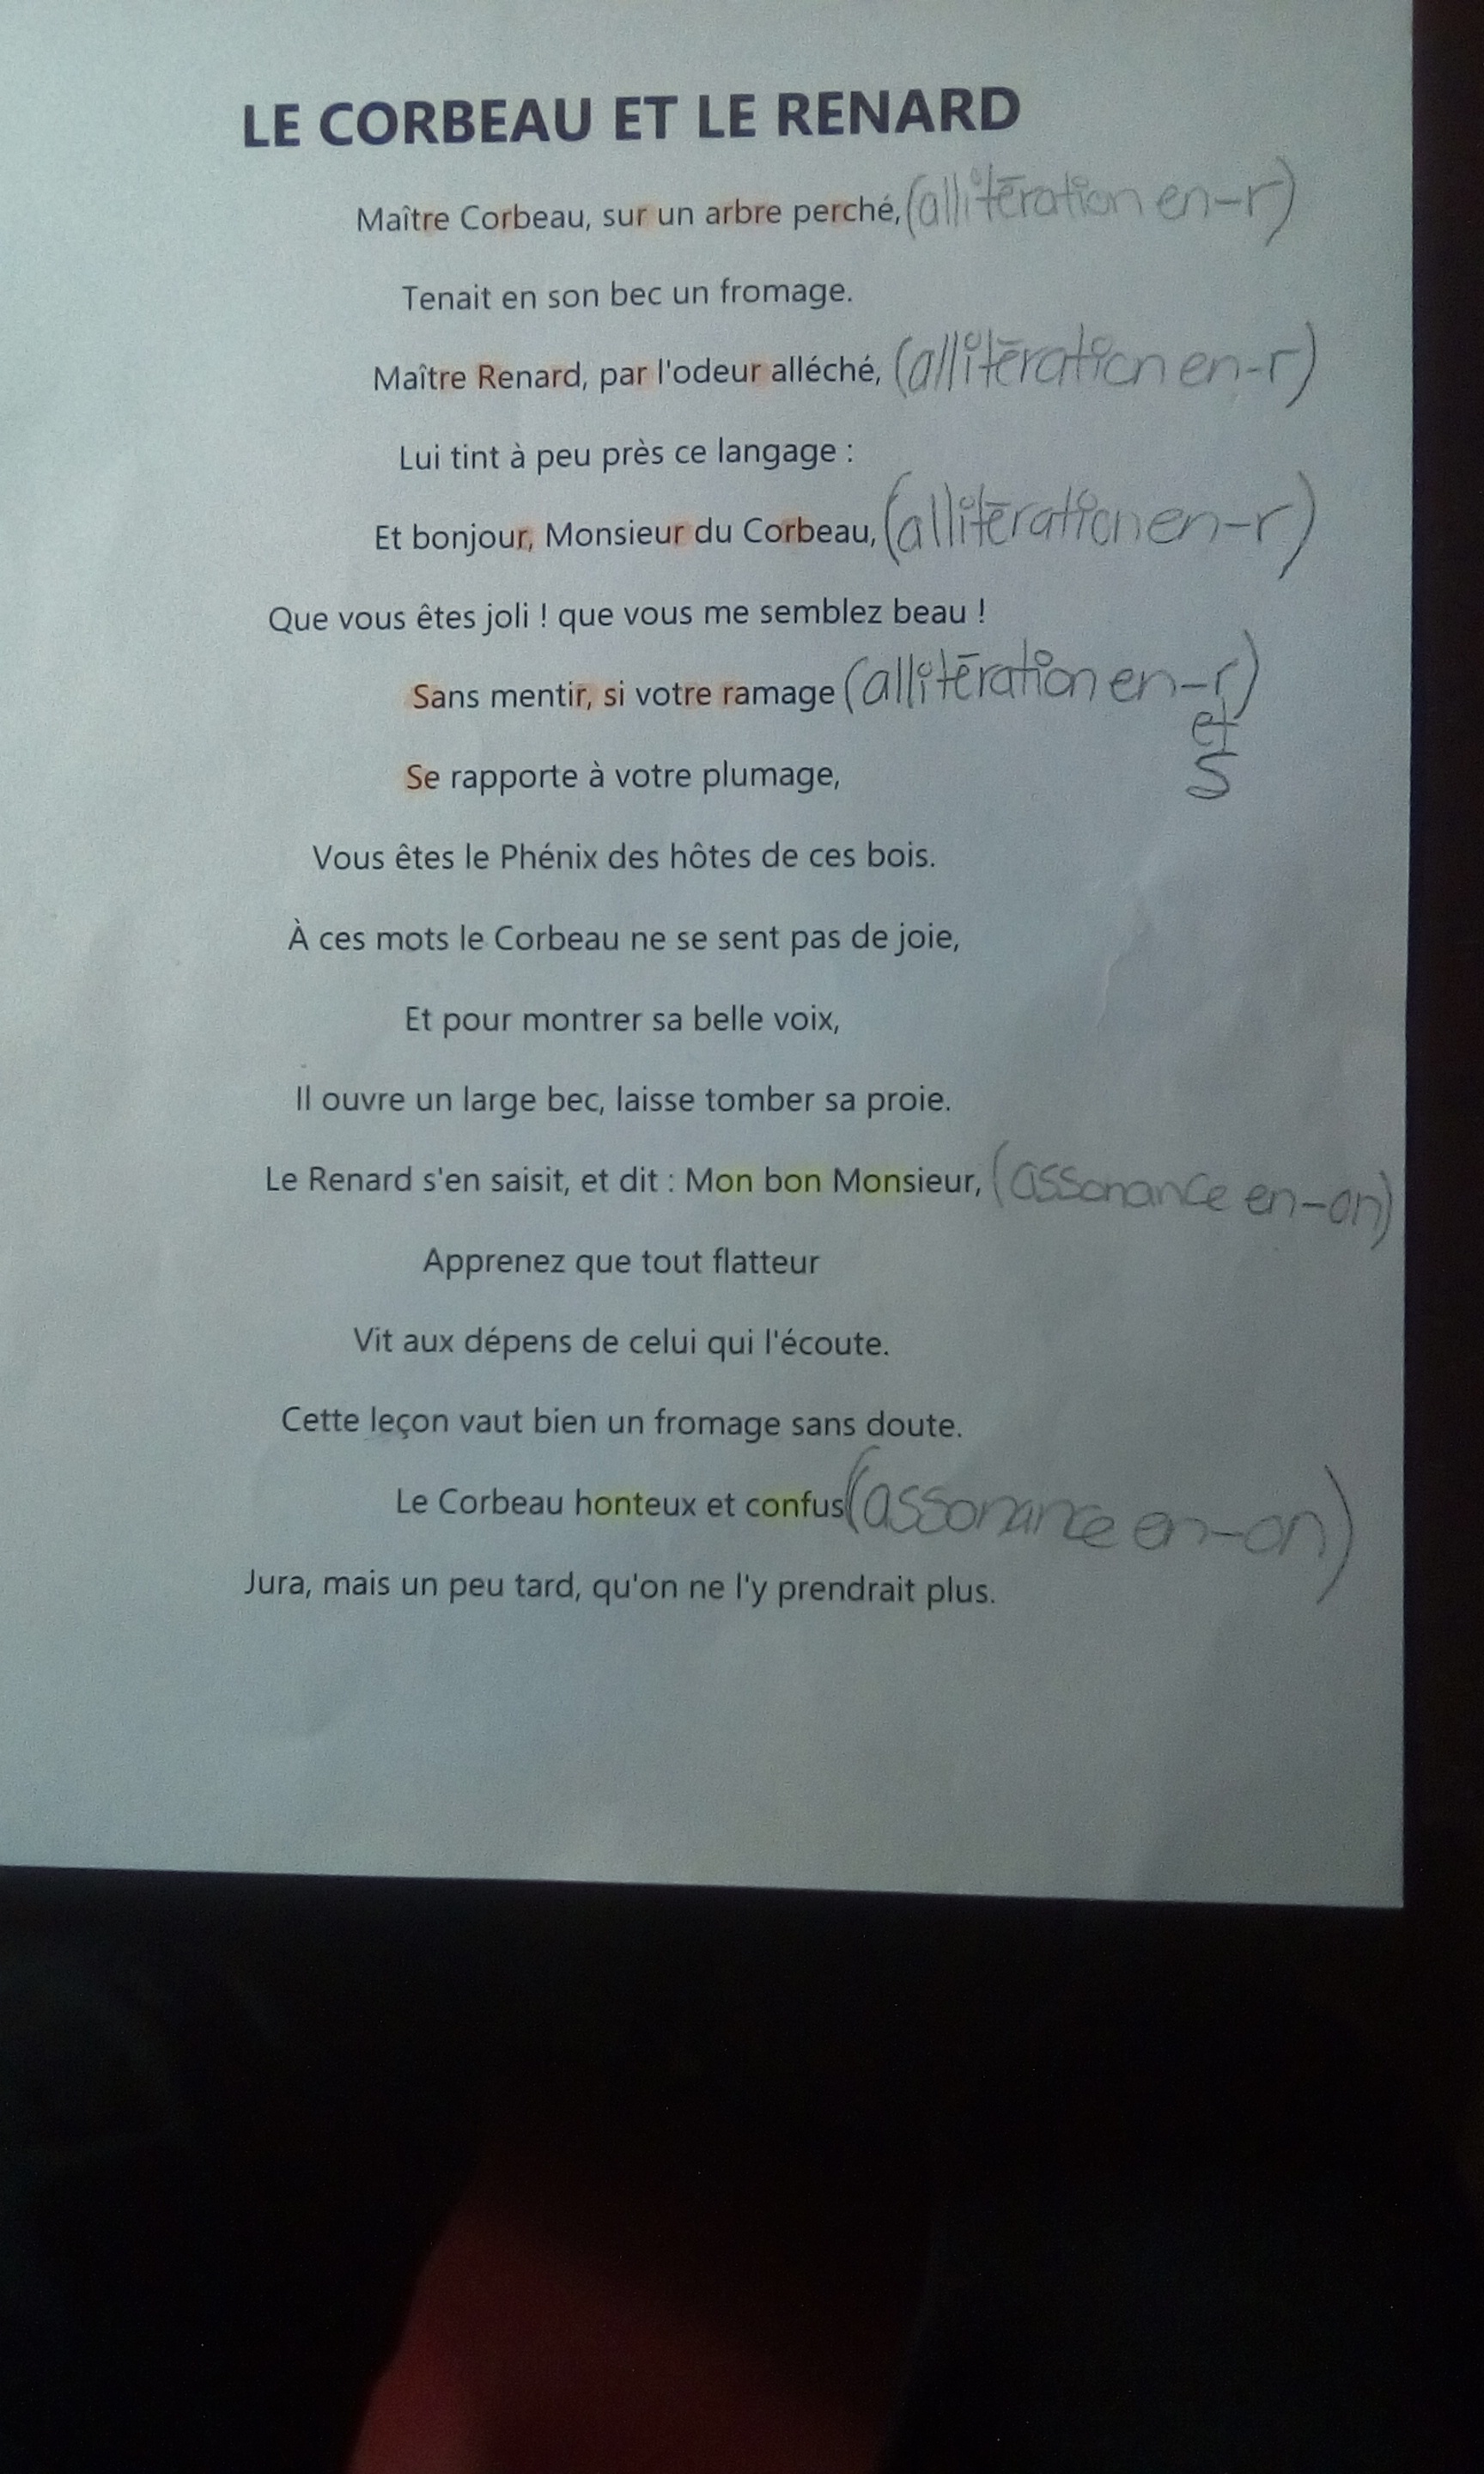 LE CORBEAU ET LE RENARD
Maître Corbeau, sur un arbre perché, (allitération en-r)
Tenait en son bec un fromage.
Maître Renard, par l'odeur alléché, (allitération en-r)
Lui tint à peu près ce langage :
Et bonjour, Monsieur du Corbeau, (allitération en-r)
Que vous êtes joli ! que vous me semblez beau !
Sans mentir, si votre ramage (allitération en-r)
et
S
Se rapporte à votre plumage,
Vous êtes le Phénix des hôtes de ces bois.
À ces mots le Corbeau ne se sent pas de joie,
Et pour montrer sa belle voix,
Il ouvre un large bec, laisse tomber sa proie.
Le Renard s'en saisit, et dit : Mon bon Monsieur, (assonance en-on)
Apprenez que tout flatteur
Vit aux dépens de celui qui l'écoute.
Cette leçon vaut bien un fromage sans doute.
Le Corbeau honteux et confus (assonance en-on)
Jura, mais un peu tard, qu'on ne l'y prendrait plus.